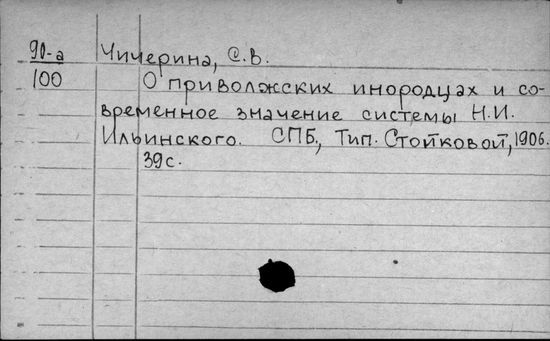 90-а Чичерина, С.В.
100 О приволжских инородцах и со-
временное значение системы Н.И.
Ильинского. СПБ., Тип. Стойковой, 1906.
39с.